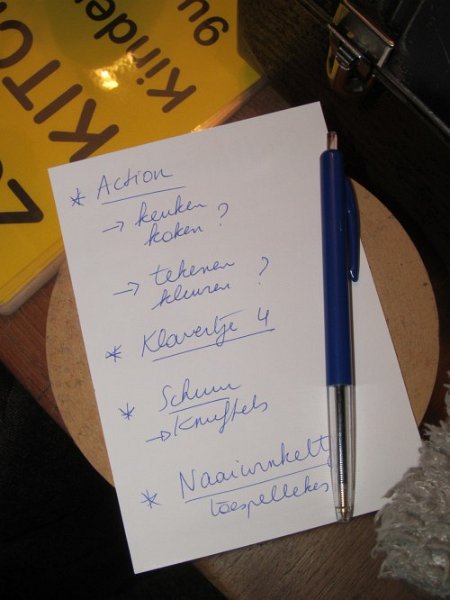 KITO
Kinde
gu
* Action
→ keuken
koken ?
→ tekenen
kleuren ?
* Klavertje 4
* Schuur
→ Knuffels
* Naaiwinkeltj
toespellekes